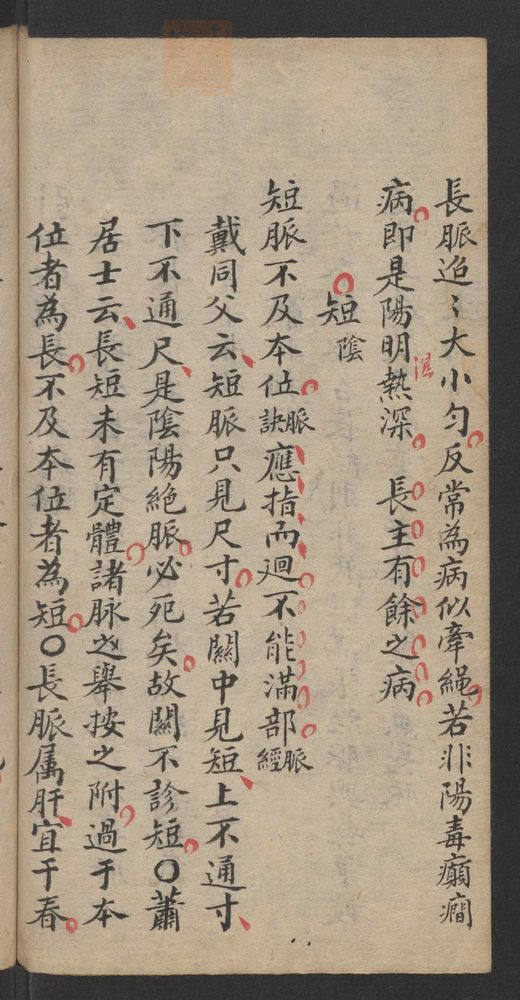 長脈迢〻大小勻反常為病似牽繩若非陽毒癲癇
病即是陽明熱深　長主有餘之病
短陰
短脈不及夲位脈訣應指而廻不能滿部脈經
戴同父云短脈只見尺寸若關中見短上不通寸
下不通尺是陰陽絶脈必死矣故關不診短〇蕭
居士云長短未有定體諸脉之舉按之附過于夲
位者為長不及夲位者為短〇長脈属肝宜于春